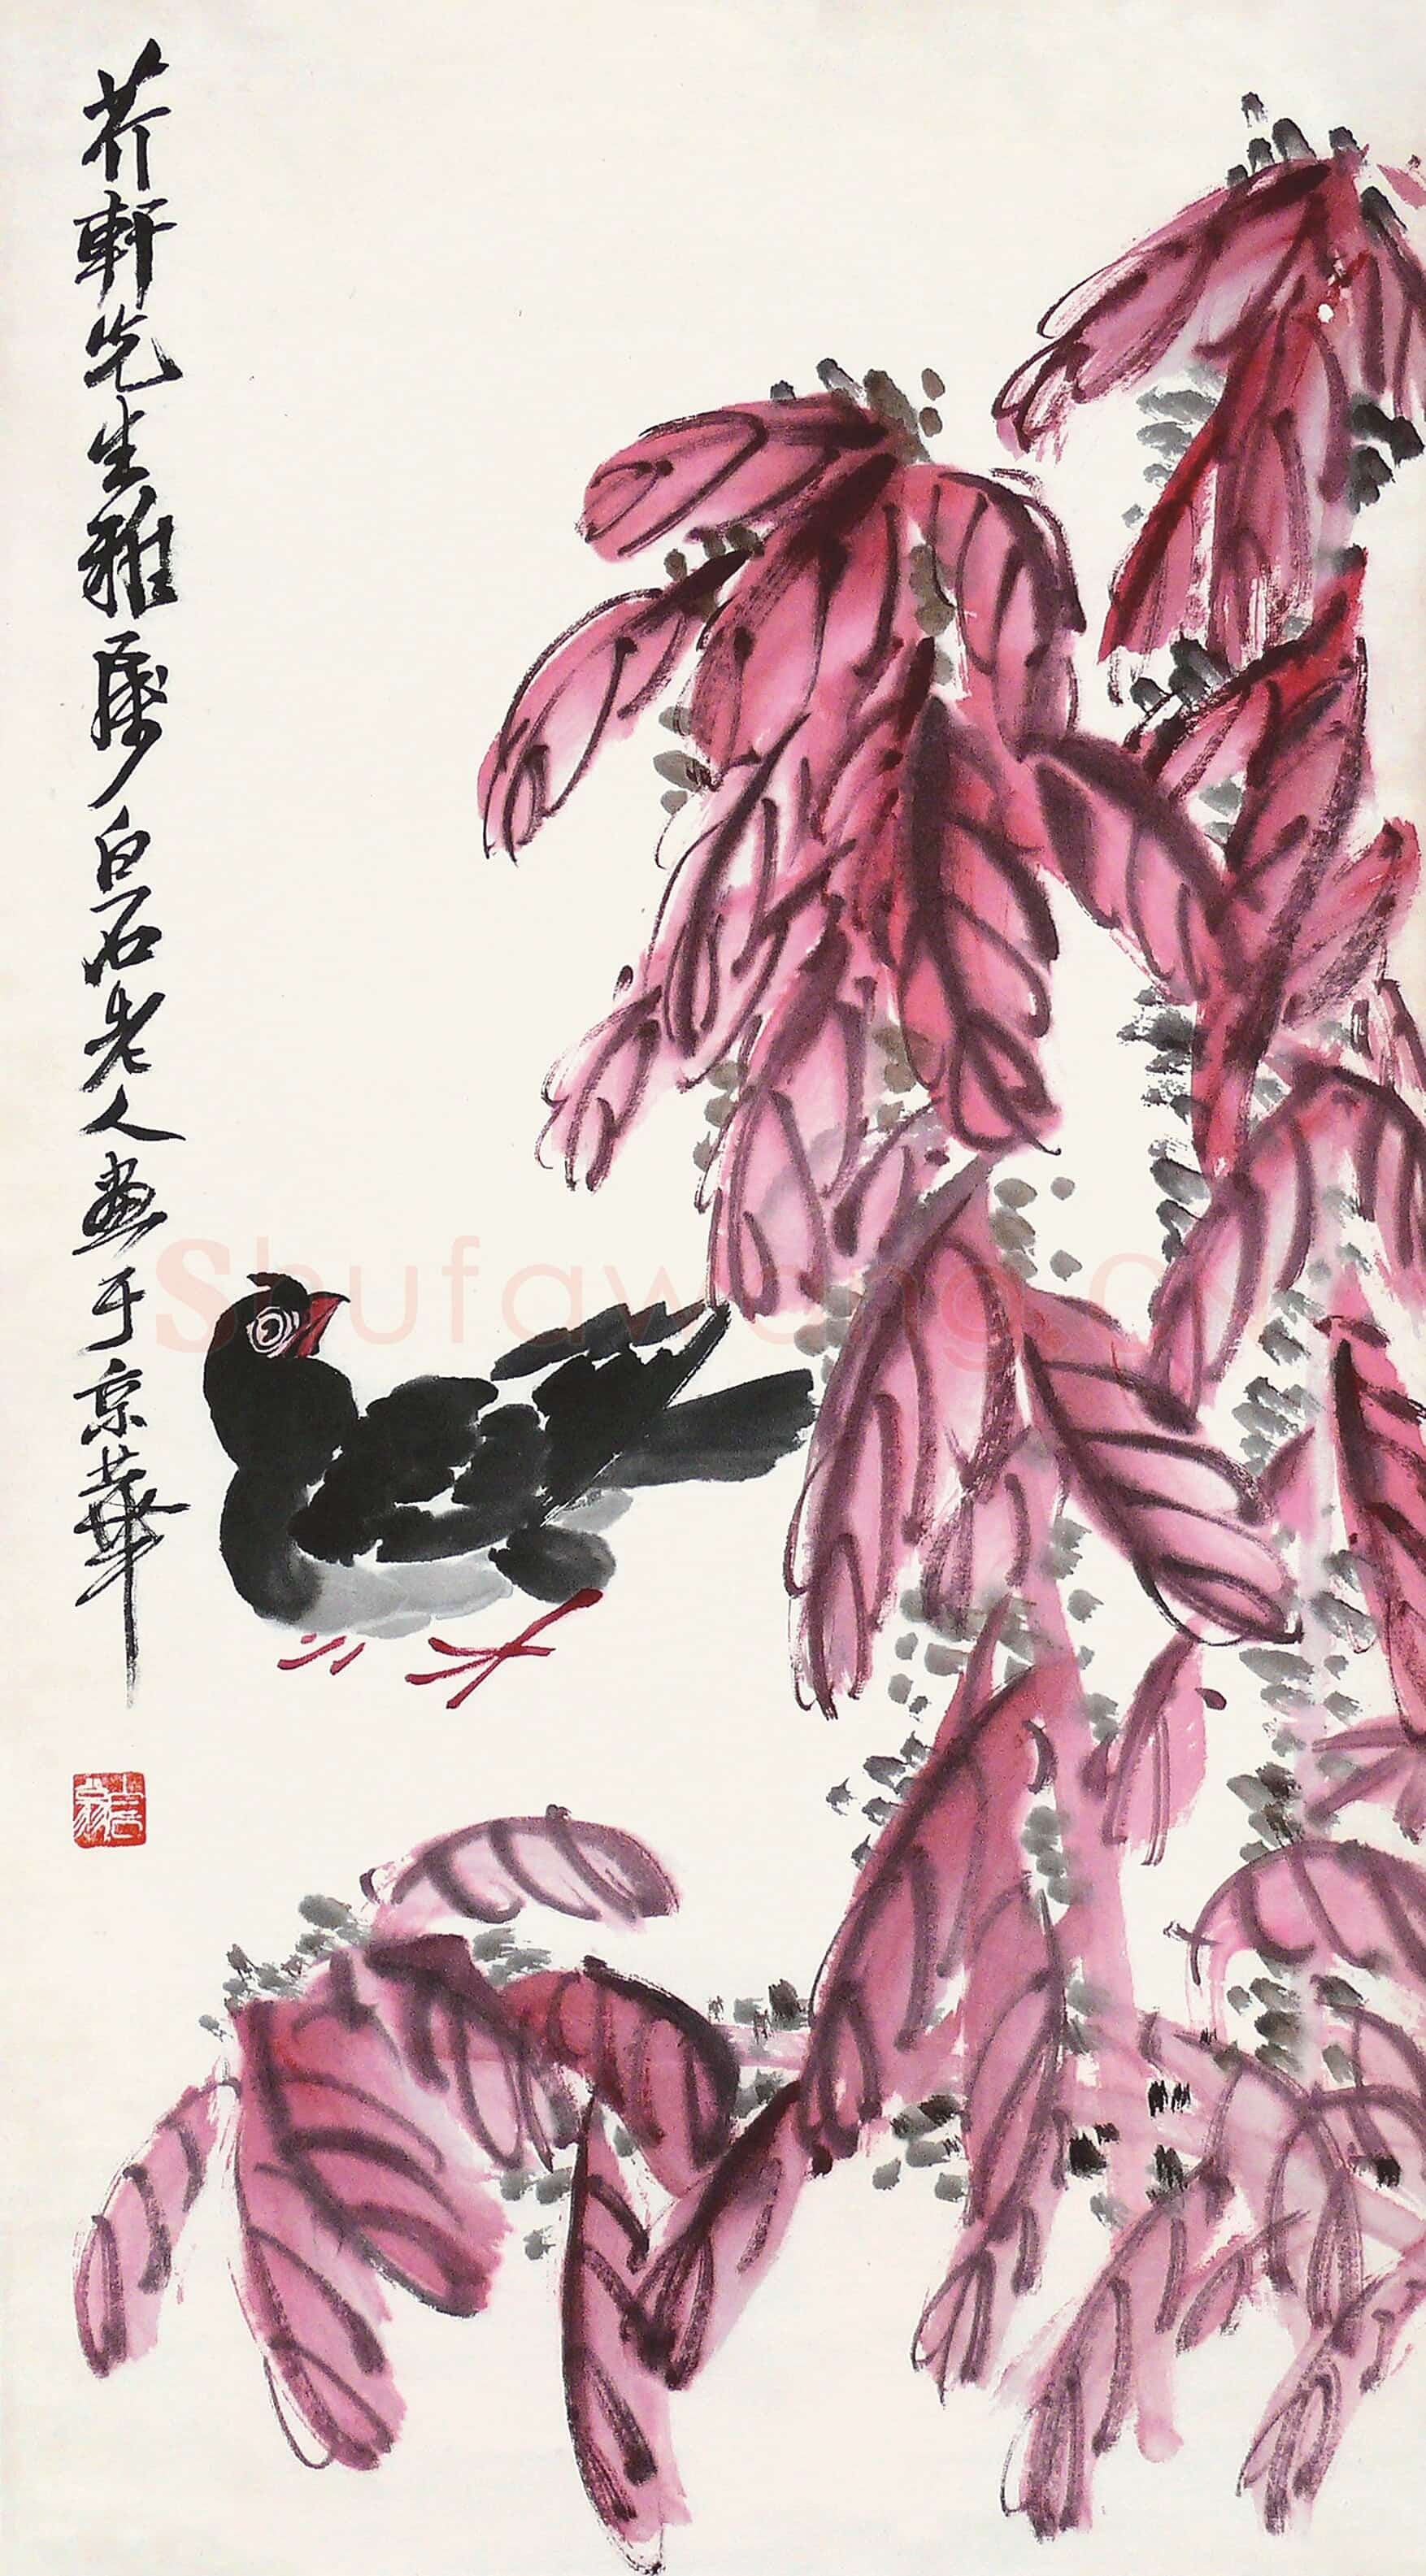 芥軒先生雅屬白石老人畫于京華
Shufawang.cn